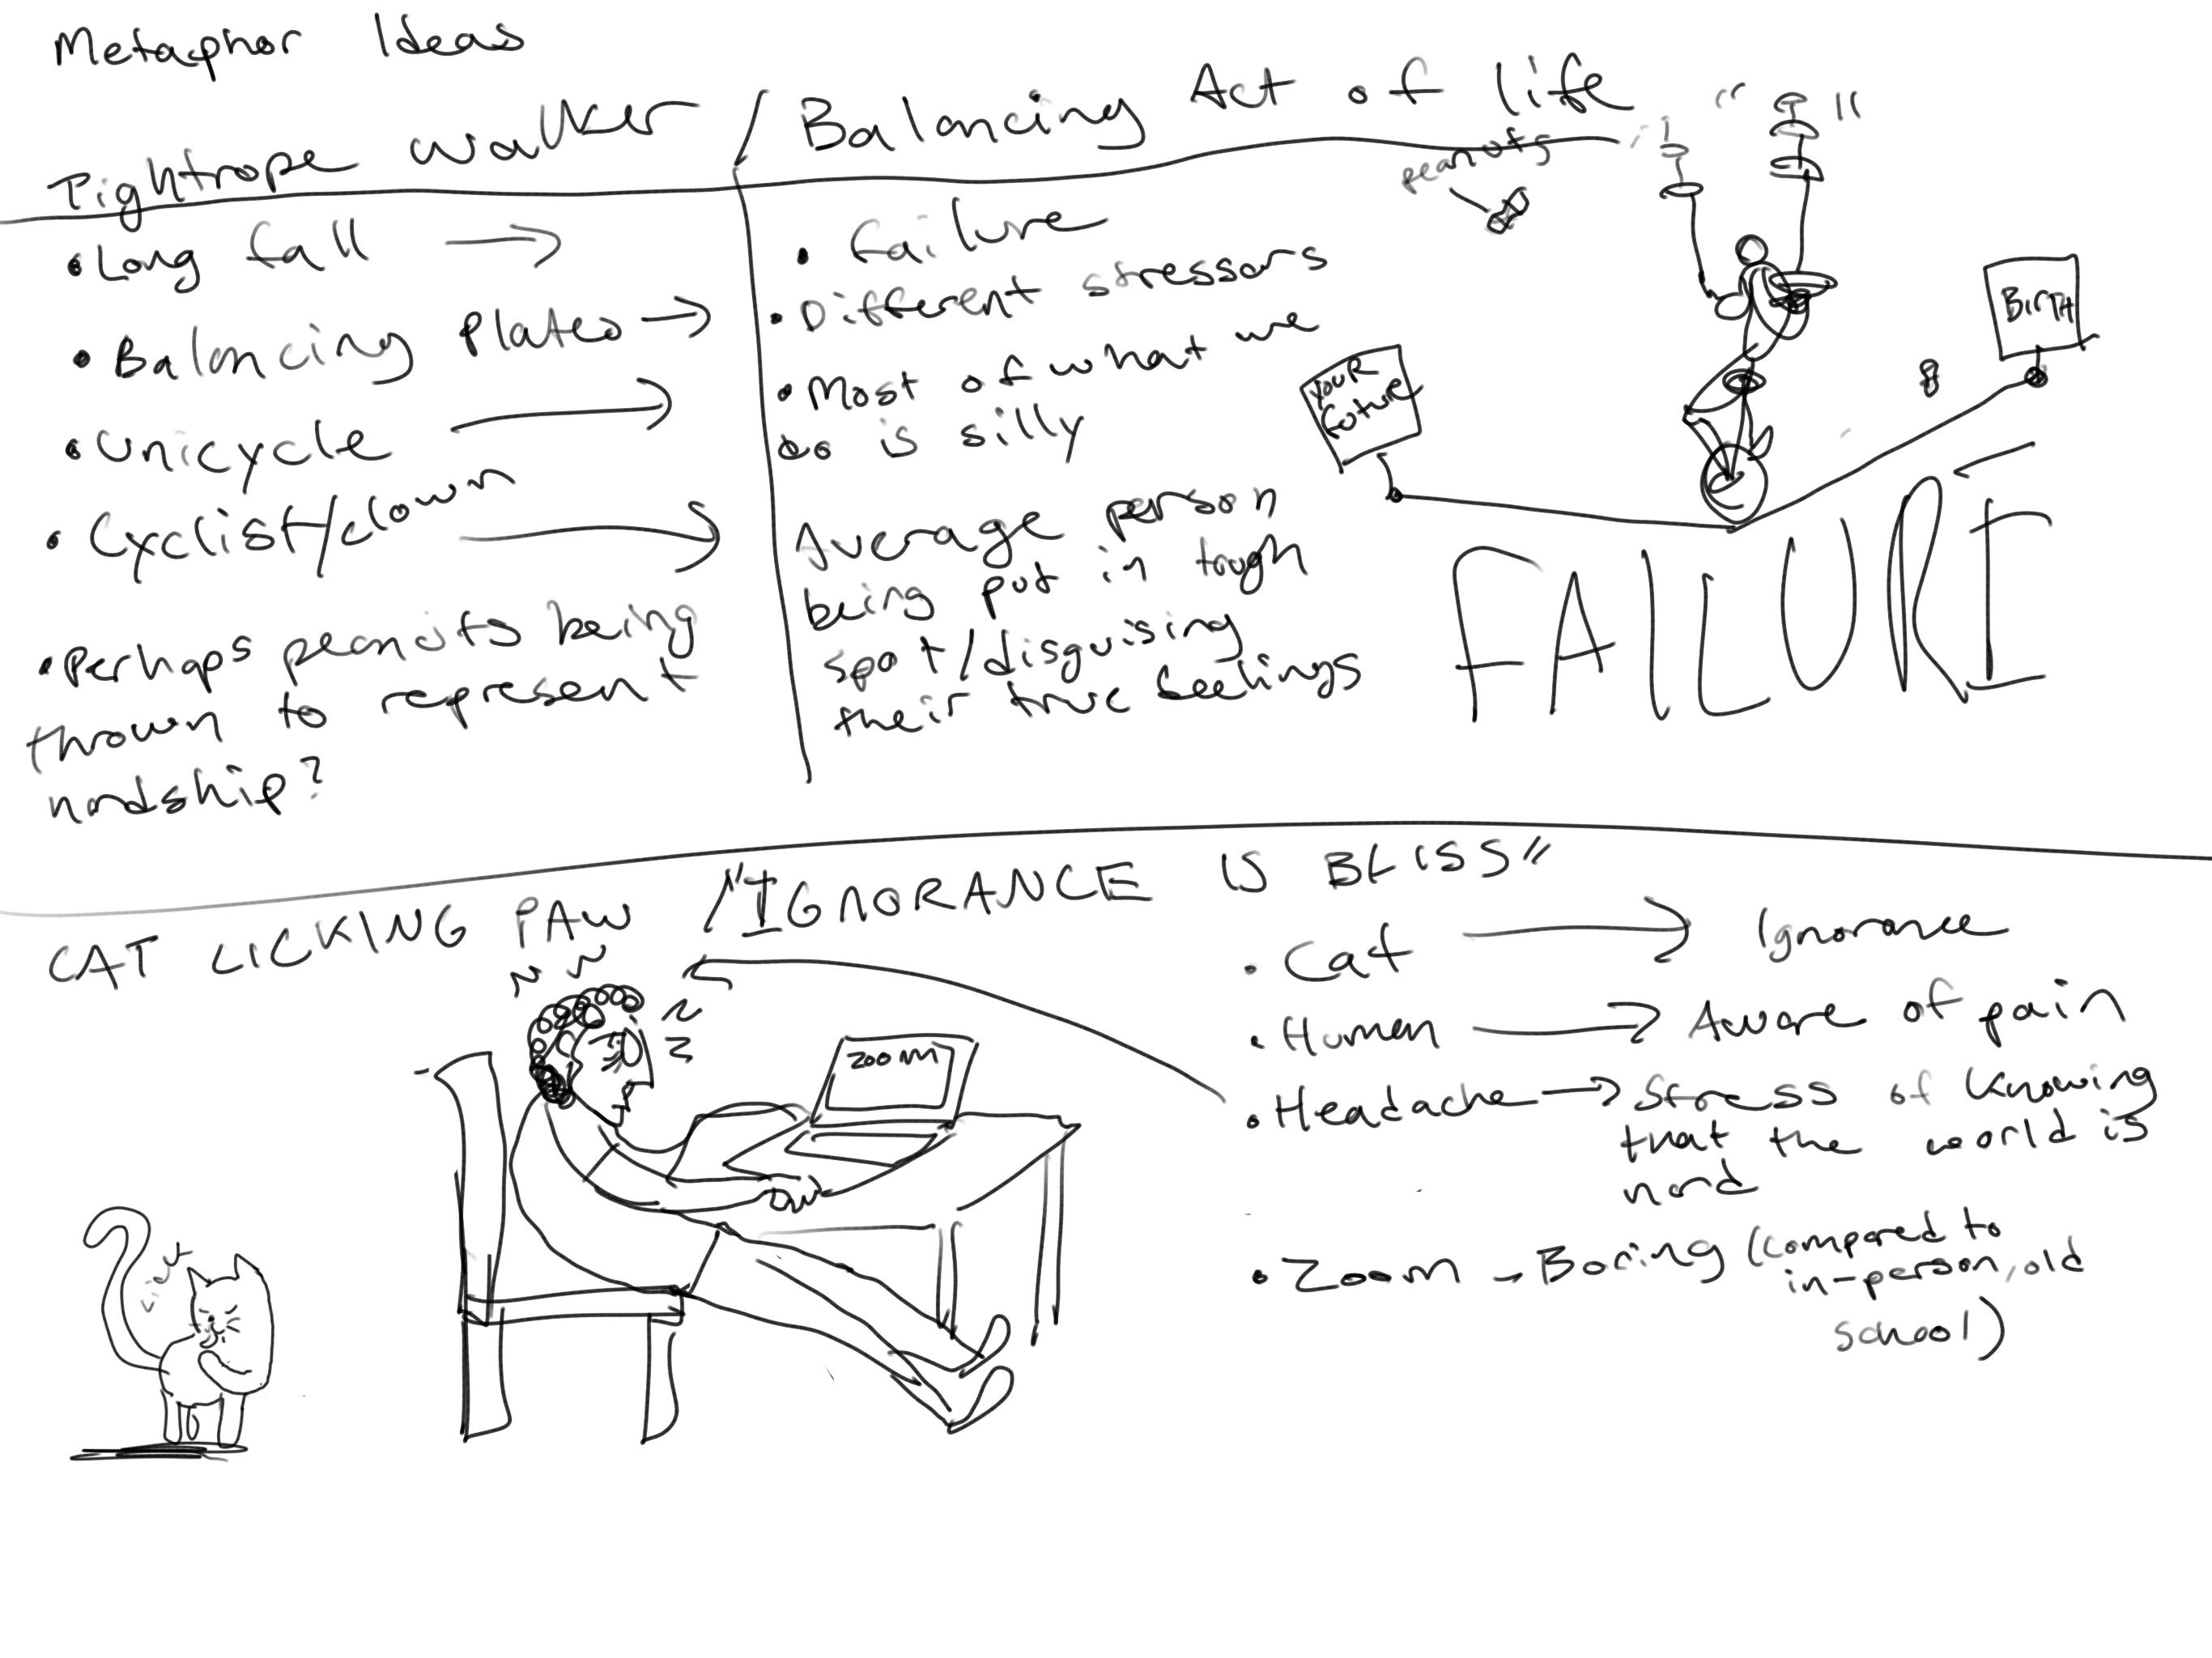 Metaphor Ideas
Tightrope walker / Balancing Act of life
• Long fall →
• Balancing plates →
• Unicycle →
• Cyclist/clown →
• Perhaps peanuts being
thrown to represent
hardship?
• Failure
• Different stressors
• Most of what we
do is silly
Average person
being put in tough
spot/disguising
their true feelings
peanuts
YOUR
future
BIRTH
FAILURE
CAT LICKING PAW / "IGNORANCE IS BLISS"
ZOOM
• Cat → Ignorance
• Human → Aware of pain
• Headache → Stress of knowing
that the world is
hard
• Zoom - Boring (compared to
in-person, old
school)